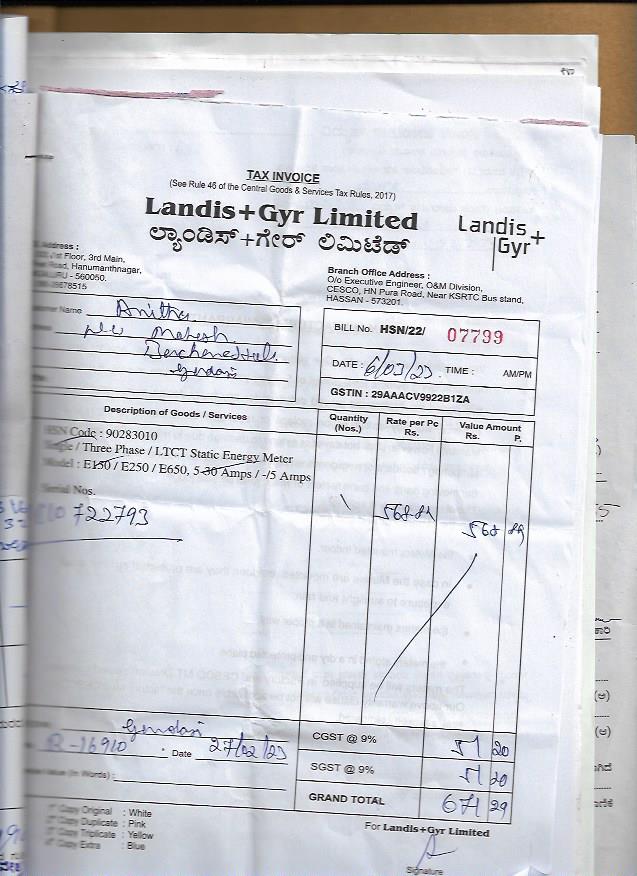 TAX INVOICE
(See Rule 46 of the Central Goods & Services Tax Rules, 2017)
Landis+Gyr Limited
ಲ್ಯಾಂಡಿಸ್+ಗೇರ್ ಲಿಮಿಟೆಡ್
Landis+
Gyr
Address :
Floor, 3rd Main,
Road, Hanumanthnagar,
560050.
Branch Office Address :
O/o Executive Engineer, O&M Division,
CESCO, HN Pura Road, Near KSRTC Bus stand,
HASSAN - 573201.
Name Anitha
Mahesh
BILL No. HSN/22/ 07799
DATE : 6/03/23 TIME : AM/PM
GSTIN : 29AAACV9922B1ZA
Description of Goods / Services
Quantity (Nos.)
Rate per Pc Rs.
Value Amount Rs. P.
HSN Code : 90283010
Single / Three Phase / LTCT Static Energy Meter
Model : E150 / E250 / E650, 5-30 Amps / -/5 Amps
Serial Nos.
722793
1 568 89 568 89
R-16910 Date 27/02/23
(in Words) :
CGST @ 9% 51 20
SGST @ 9% 51 20
GRAND TOTAL 671 29
Copy Original : White
Copy Duplicate : Pink
Copy Triplicate : Yellow
Copy Extra : Blue
For Landis+Gyr Limited
Signature